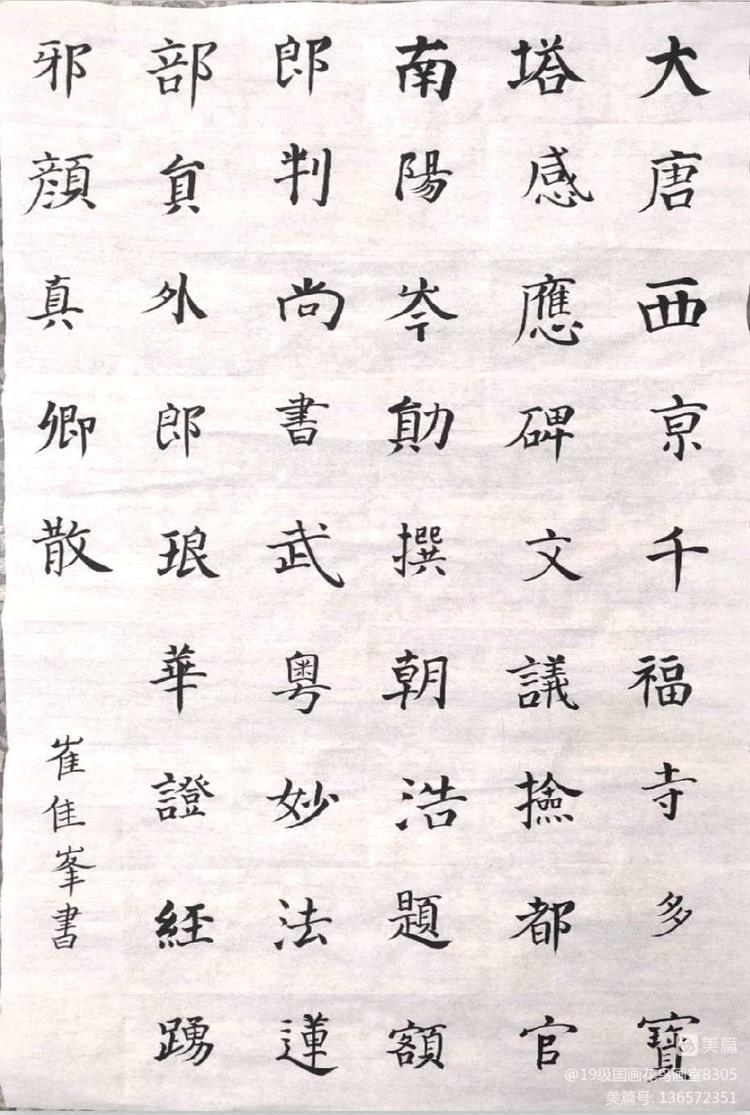 大唐西京千福寺多寶
塔感應碑文議撿都官
南陽岑勛撰朝浩題額
郎判尚書武粤妙法蓮
部貟外郎琅華證經踴
邪顔真卿散
崔佳峯書
美篇
@19级国画花鸟画室8305
美篇号: 136572351